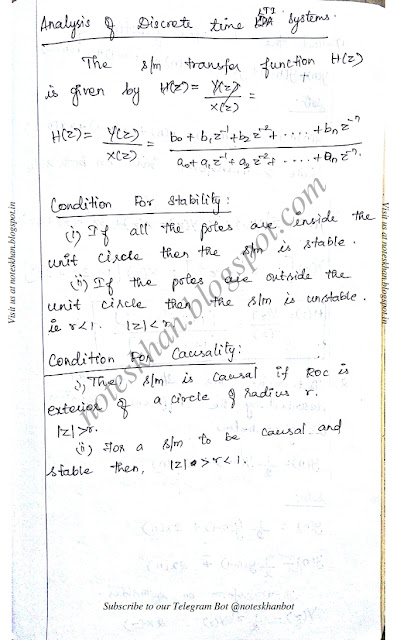 Analysis of Discrete time LTI systems.
The s/m transfer function H(z)
is given by H(z) = Y(z)/X(z) =
H(z) = Y(z)/X(z) = b₀ + b₁z⁻¹ + b₂z⁻² + ..... + bₙz⁻ⁿ / a₀ + a₁z⁻¹ + a₂z⁻² + ..... + aₙz⁻ⁿ.
Condition For Stability:
(i) If all the poles are inside the
unit circle then the s/m is stable.
(ii) If the poles are outside the
unit circle then the s/m is unstable.
ie r<1. |z|<r.
Condition For Causality:
i) The s/m is causal if ROC is
exterior of a circle of radius r.
|z|>r.
(ii) For a s/m to be causal and
stable then, |z|>r<1.
Visit us at noteskhan.blogspot.in
Visit us at noteskhan.blogspot.in
noteskhan.blogspot.com
Subscribe to our Telegram Bot @noteskhanbot